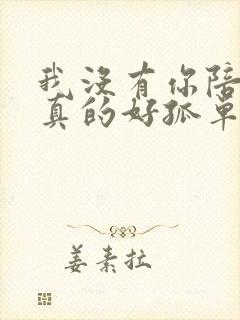 我没有你陪
真的好孤单
姜素拉